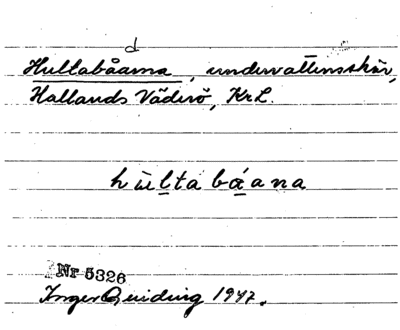 d
Hultabåarna, undervattensskär,
Hallands Väderö, Kr L.
hùlta båana
Nr 5326
Inger Quiding 1947.